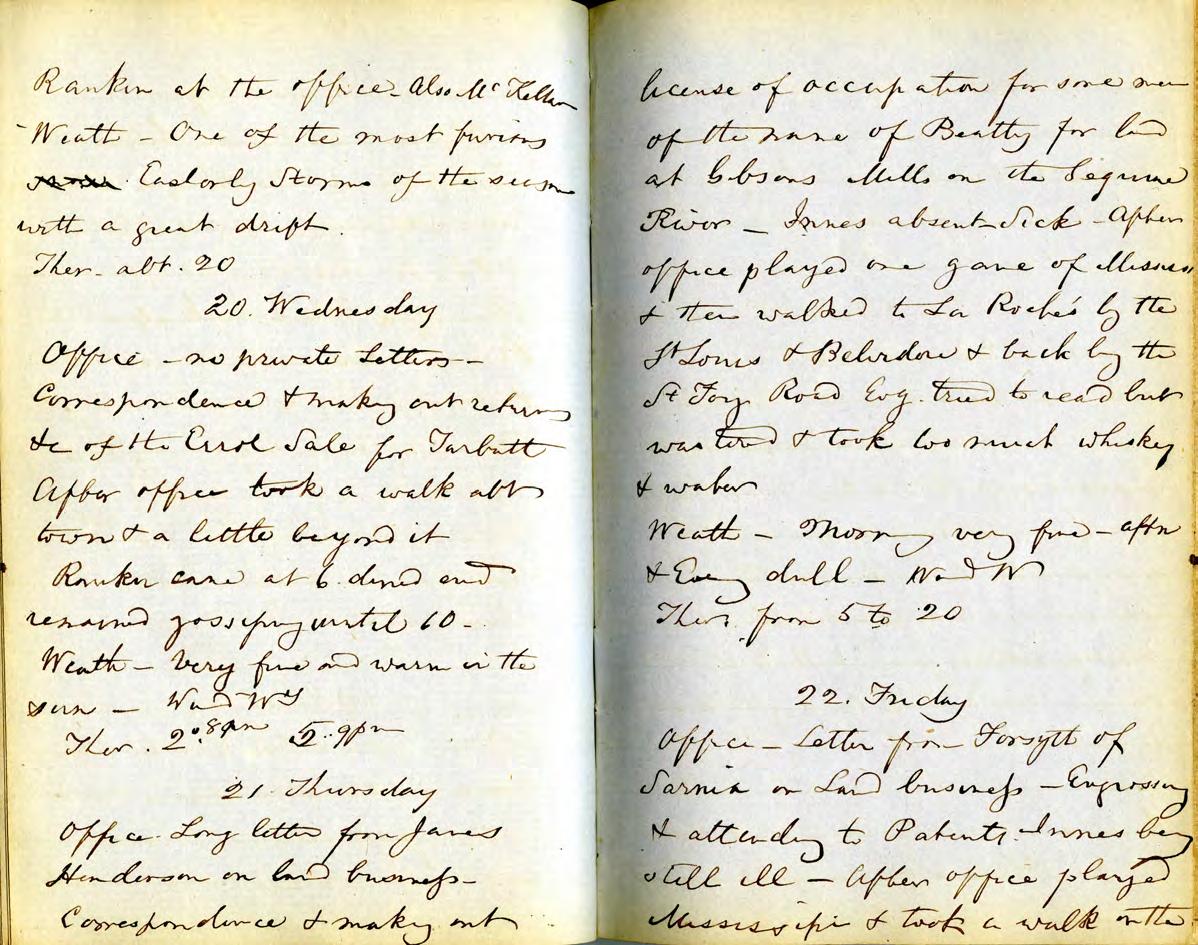 Rankin at the office - Also McKellar
Weath - One of the most furious
Easterly Storms of the season
with a great drift.
Ther - abt. 20
20. Wednesday
Office - no private letters -
Correspondence & making out returns
&c of the Errol Sale for Tarbutt
After office took a walk abt
town & a little beyond it
Rankin came at 6. dined and
remained gossiping until 10 -
Weath - Very fine and warm in the
sun - Wind Wy
Ther. 2° 8am 5. 9pm
21. Thursday
Office - Long letter from James
Henderson on land business -
Correspondence & making out
license of occupation for some men
of the name of Beatty for land
at Gibsons Mills on the Seguine
River - Innes absent - Sick - After
office played one game of Mississi
& then walked to La Roche's by the
St Louis & Belvidere & back by the
St Foy Road Evg. tried to read but
was tired & took too much whiskey
& water
Weath - Morng very fine - aftn
& Eveng dull - Wind W
Ther. from 5 to 20
22. Friday
Office - Letter from Forsyth of
Sarnia on Land business - Engrossing
& attending to Patents - Innes being
still ill - After office played
Mississipi & took a walk on the